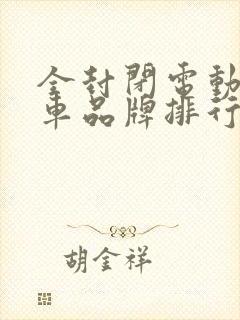 全封閉電動
車品牌排行
胡金祥